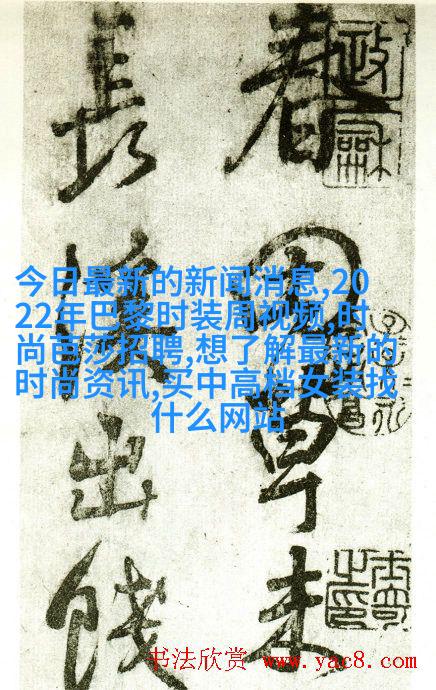 者
長溪出
今日最新的新闻消息,20
22年巴黎时装周视频,时
尚芭莎招聘,想了解最新的
时尚资讯,买中高档女装找
什么网站
书法欣赏 www.yac8.com